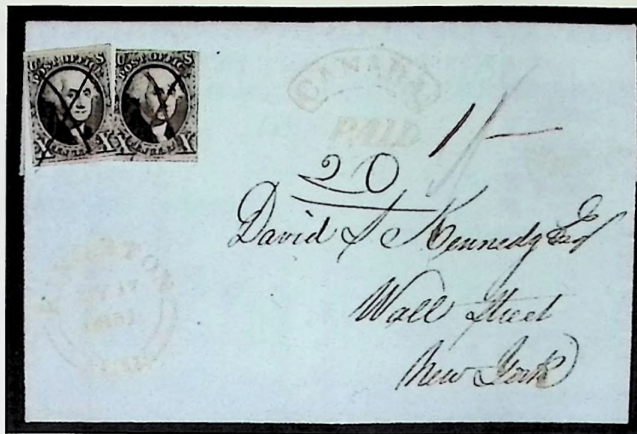 U S
POST OFFICE
X X
U S
POST OFFICE
X X
CANADA
PAID
1/-
20
David S Kennedy Esq
Wall Street
New York
KINGSTON
17
1851